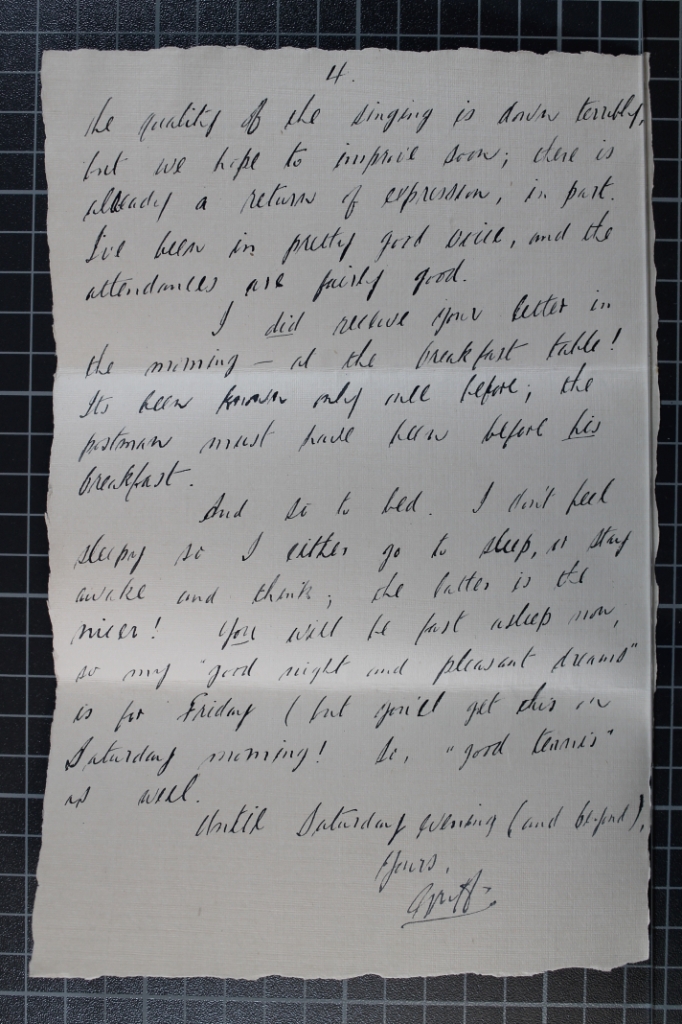 4.
the quality of the singing is down terribly,
but we hope to improve soon; there is
already a return of expression, in part.
I've been in pretty good voice, and the
attendances are fairly good.
I did receive your letter in
the morning — at the breakfast table!
Its been known only once before; the
postman must have been before his
breakfast.
And so to bed. I don't feel
sleepy so I either go to sleep, or stay
awake and think; the latter is the
nicer! You will be fast asleep now,
so my "good night and pleasant dreams"
is for Friday (but you'll get this on
Saturday morning! So, "good tennis"
as well.
Until Saturday evening (and beyond),
Yours,